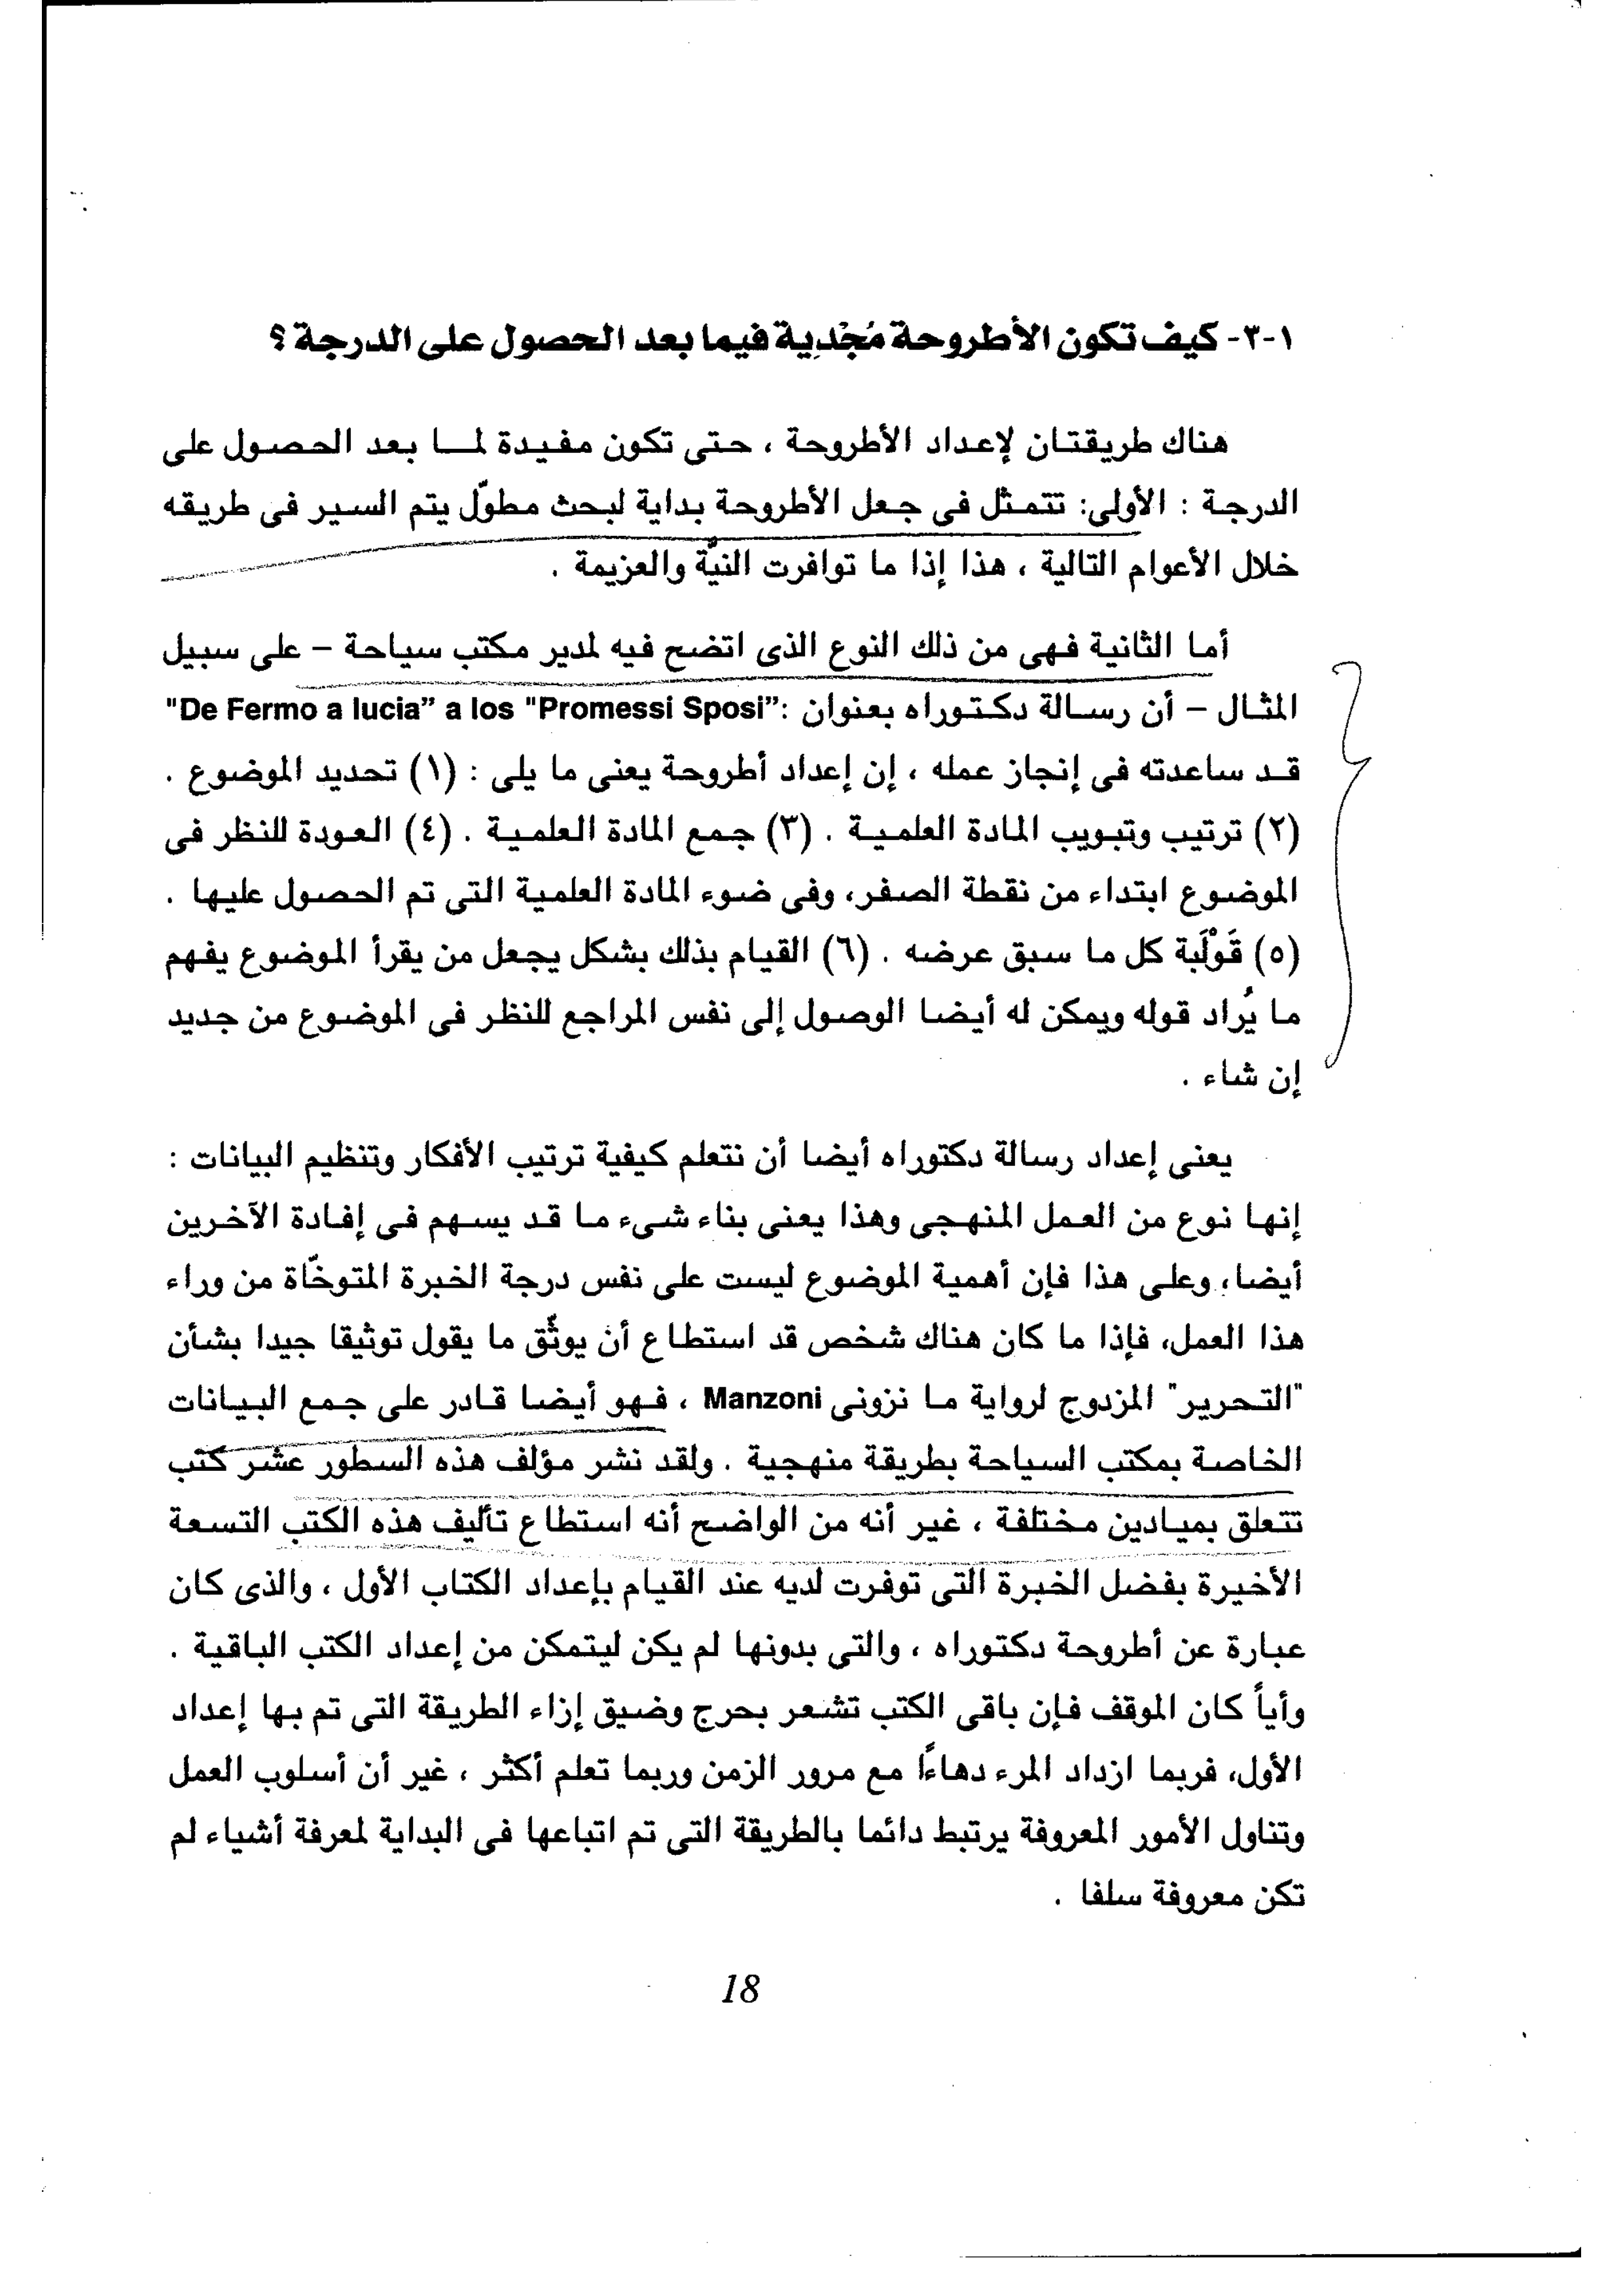 ١-٣- كيف تكون الأطروحة مُجْدِية فيما بعد الحصول على الدرجة ؟
هناك طريقتان لإعداد الأطروحة ، حتى تكون مفيدة لمـا بعد الحصول على
الدرجة : الأولى: تتمثل فى جعل الأطروحة بداية لبحث مطوّل يتم السير فى طريقه
خلال الأعوام التالية ، هذا إذا ما توافرت النيّة والعزيمة .
أما الثانية فهى من ذلك النوع الذى اتضح فيه لمدير مكتب سياحة – على سبيل
المثال – أن رسالة دكتوراه بعنوان :"De Fermo a lucia” a los "Promessi Sposi”
قد ساعدته فى إنجاز عمله ، إن إعداد أطروحة يعنى ما يلى : (١) تحديد الموضوع .
(٢) ترتيب وتبويب المادة العلمية . (٣) جمع المادة العلمية . (٤) العودة للنظر فى
الموضوع ابتداء من نقطة الصفر، وفى ضوء المادة العلمية التى تم الحصول عليها .
(٥) قَوْلَبة كل ما سبق عرضه . (٦) القيام بذلك بشكل يجعل من يقرأ الموضوع يفهم
ما يُراد قوله ويمكن له أيضا الوصول إلى نفس المراجع للنظر فى الموضوع من جديد
إن شاء .
يعنى إعداد رسالة دكتوراه أيضا أن نتعلم كيفية ترتيب الأفكار وتنظيم البيانات :
إنها نوع من العمل المنهجى وهذا يعنى بناء شىء ما قد يسهم فى إفادة الآخرين
أيضا، وعلى هذا فإن أهمية الموضوع ليست على نفس درجة الخبرة المتوخّاة من وراء
هذا العمل، فإذا ما كان هناك شخص قد استطاع أن يوثّق ما يقول توثيقا جيدا بشأن
"التحرير" المزدوج لرواية ما نزونى Manzoni ، فهو أيضا قادر على جمع البيانات
الخاصة بمكتب السياحة بطريقة منهجية . ولقد نشر مؤلف هذه السطور عشر كتب
تتعلق بميادين مختلفة ، غير أنه من الواضح أنه استطاع تأليف هذه الكتب التسعة
الأخيرة بفضل الخبرة التى توفرت لديه عند القيام بإعداد الكتاب الأول ، والذى كان
عبارة عن أطروحة دكتوراه ، والتى بدونها لم يكن ليتمكن من إعداد الكتب الباقية .
وأياً كان الموقف فإن باقى الكتب تشعر بحرج وضيق إزاء الطريقة التى تم بها إعداد
الأول، فربما ازداد المرء دهاءًا مع مرور الزمن وربما تعلم أكثر ، غير أن أسلوب العمل
وتناول الأمور المعروفة يرتبط دائما بالطريقة التى تم اتباعها فى البداية لمعرفة أشياء لم
تكن معروفة سلفا .
18